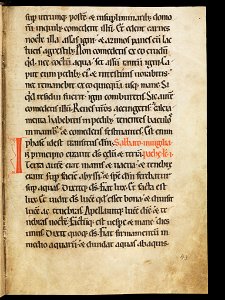 sup utrumque postē & insupliminarib; domo
rū inquib; comedent illū. Et edent carnes
nocte illa assas igni & azimos panes cū lac
tucis agrestib;. Non comedetis ex eo crudū
qd. nec coctū aqua. sed assū tantū igni. Ca
put cum pedib; ei' & intestinis vorabitis.
nec remanebit ex eo quicquā usq; mane. Si
quid residuū fuerit igni comburetis. Sic autē
comedetis illū. Renes vr̄os accingetis. calcia
menta habebitis in pedib; tenentes baculos
in manib; & comedetis festinantes. Est enim
phase idest transitus dn̄i. Sabbato in uigilia
In principio creauit ds̄ celū & terrā pasche
Terra autē erat inanis & uacua. & tenebre
erant sup faciē abyssi. & sp̄s dn̄i ferebatur
sup aquas. Dixitq; ds̄. fiat lux. Et facta est
lux. Et uidit ds̄ lucē qd ess& bona. & diuisit
lucē ac tenebras. Appellauitq; lucē diē & te
nebras noctē. Factumq; est uespe & mane dies
unus. Dixit quoq; ds̄. Fiat firmamentū in
medio aquarū & diuidat aquas ab aquis.